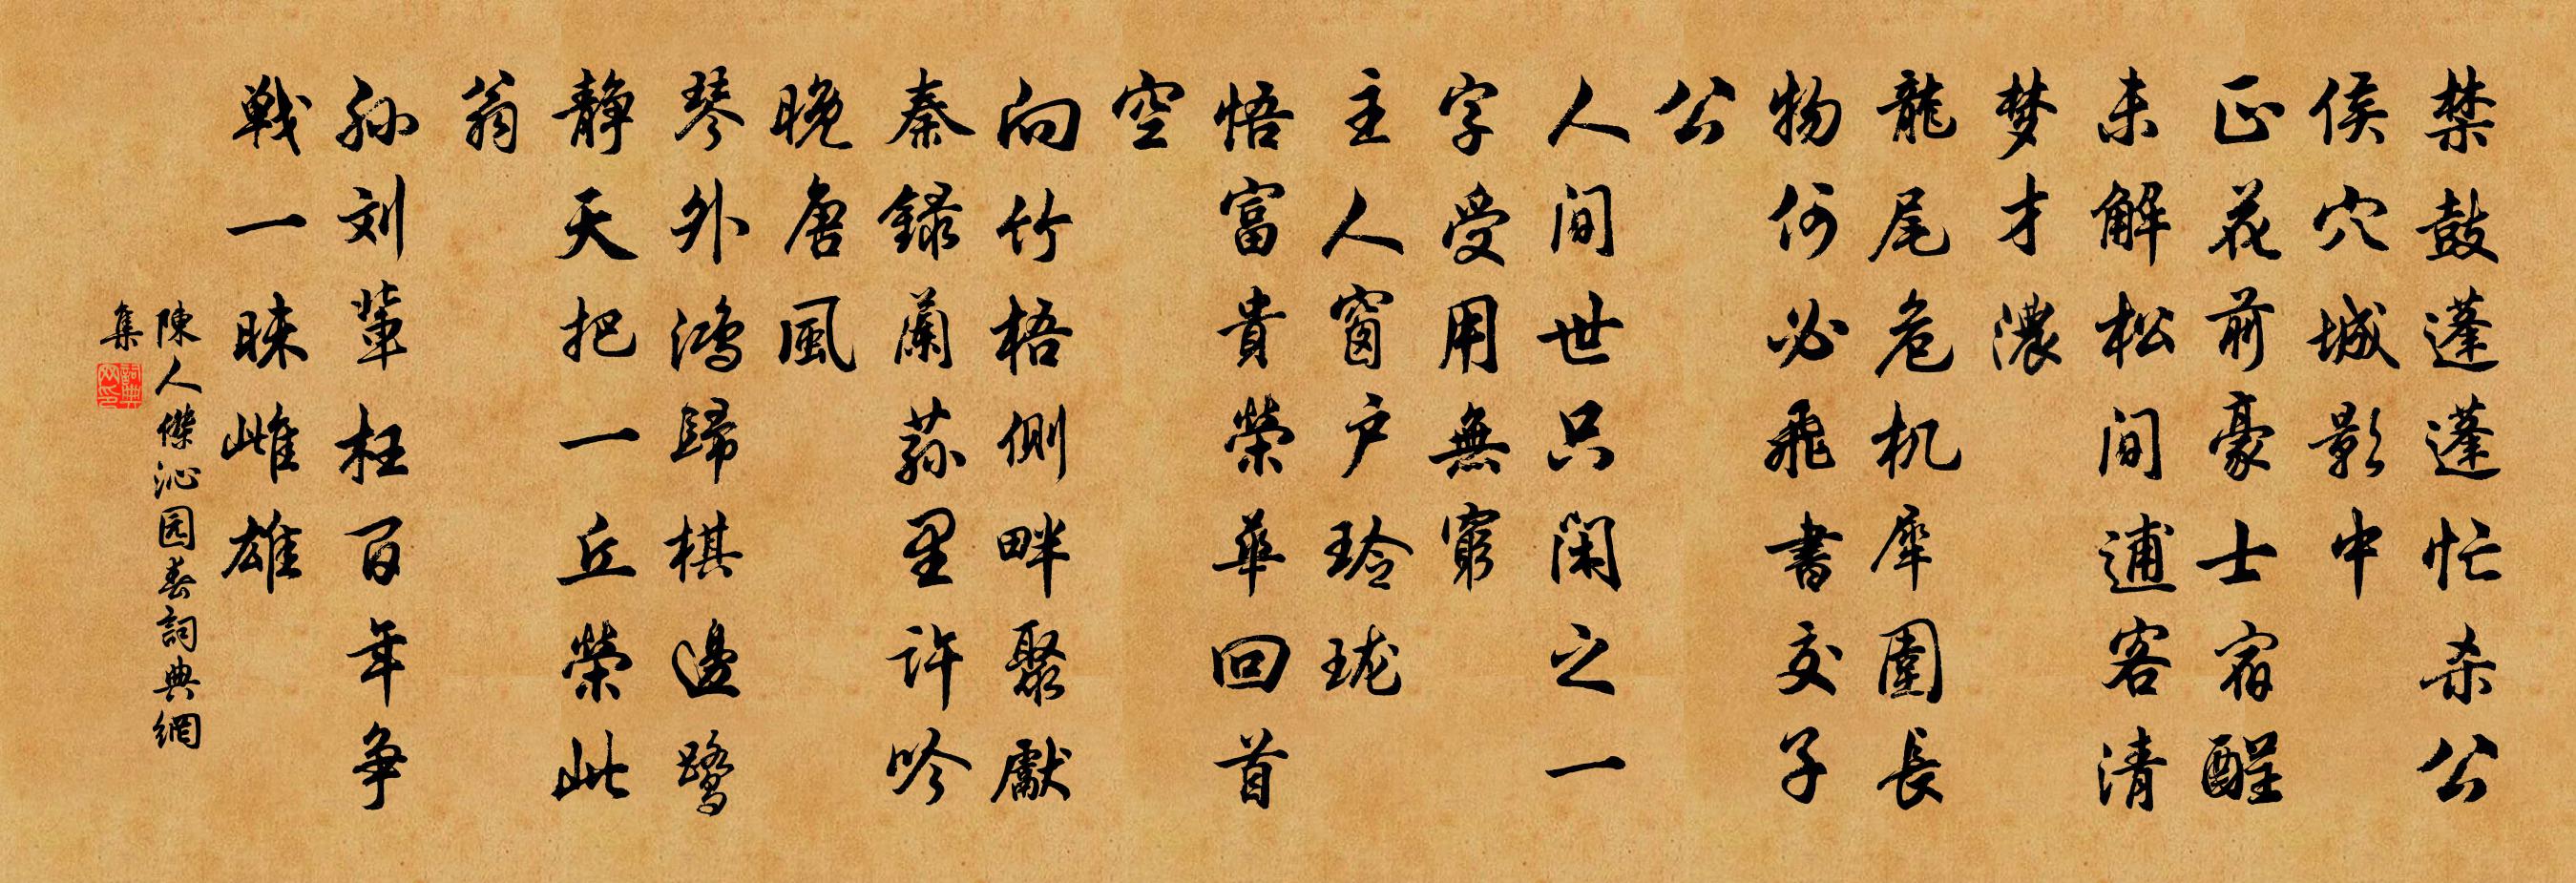 禁鼓蓬蓬忙杀公
侯穴城影中
正花前豪士宿醒
未解松间逋客清
梦才濃
龍尾危机犀圍長
物何必飛書交子
公
人间世只闲之一
字受用無窮
主人窗户玲珑
悟富貴榮華回首
空
向竹梧侧畔聚獻
秦録蘭荪里許吟
晚唐風
琴外鴻歸棋邊鹭
静天把一丘榮此
翁
孙刘辈枉百年争
戰一睐雌雄
陳人傑沁园春詞典網
集
詞典网印